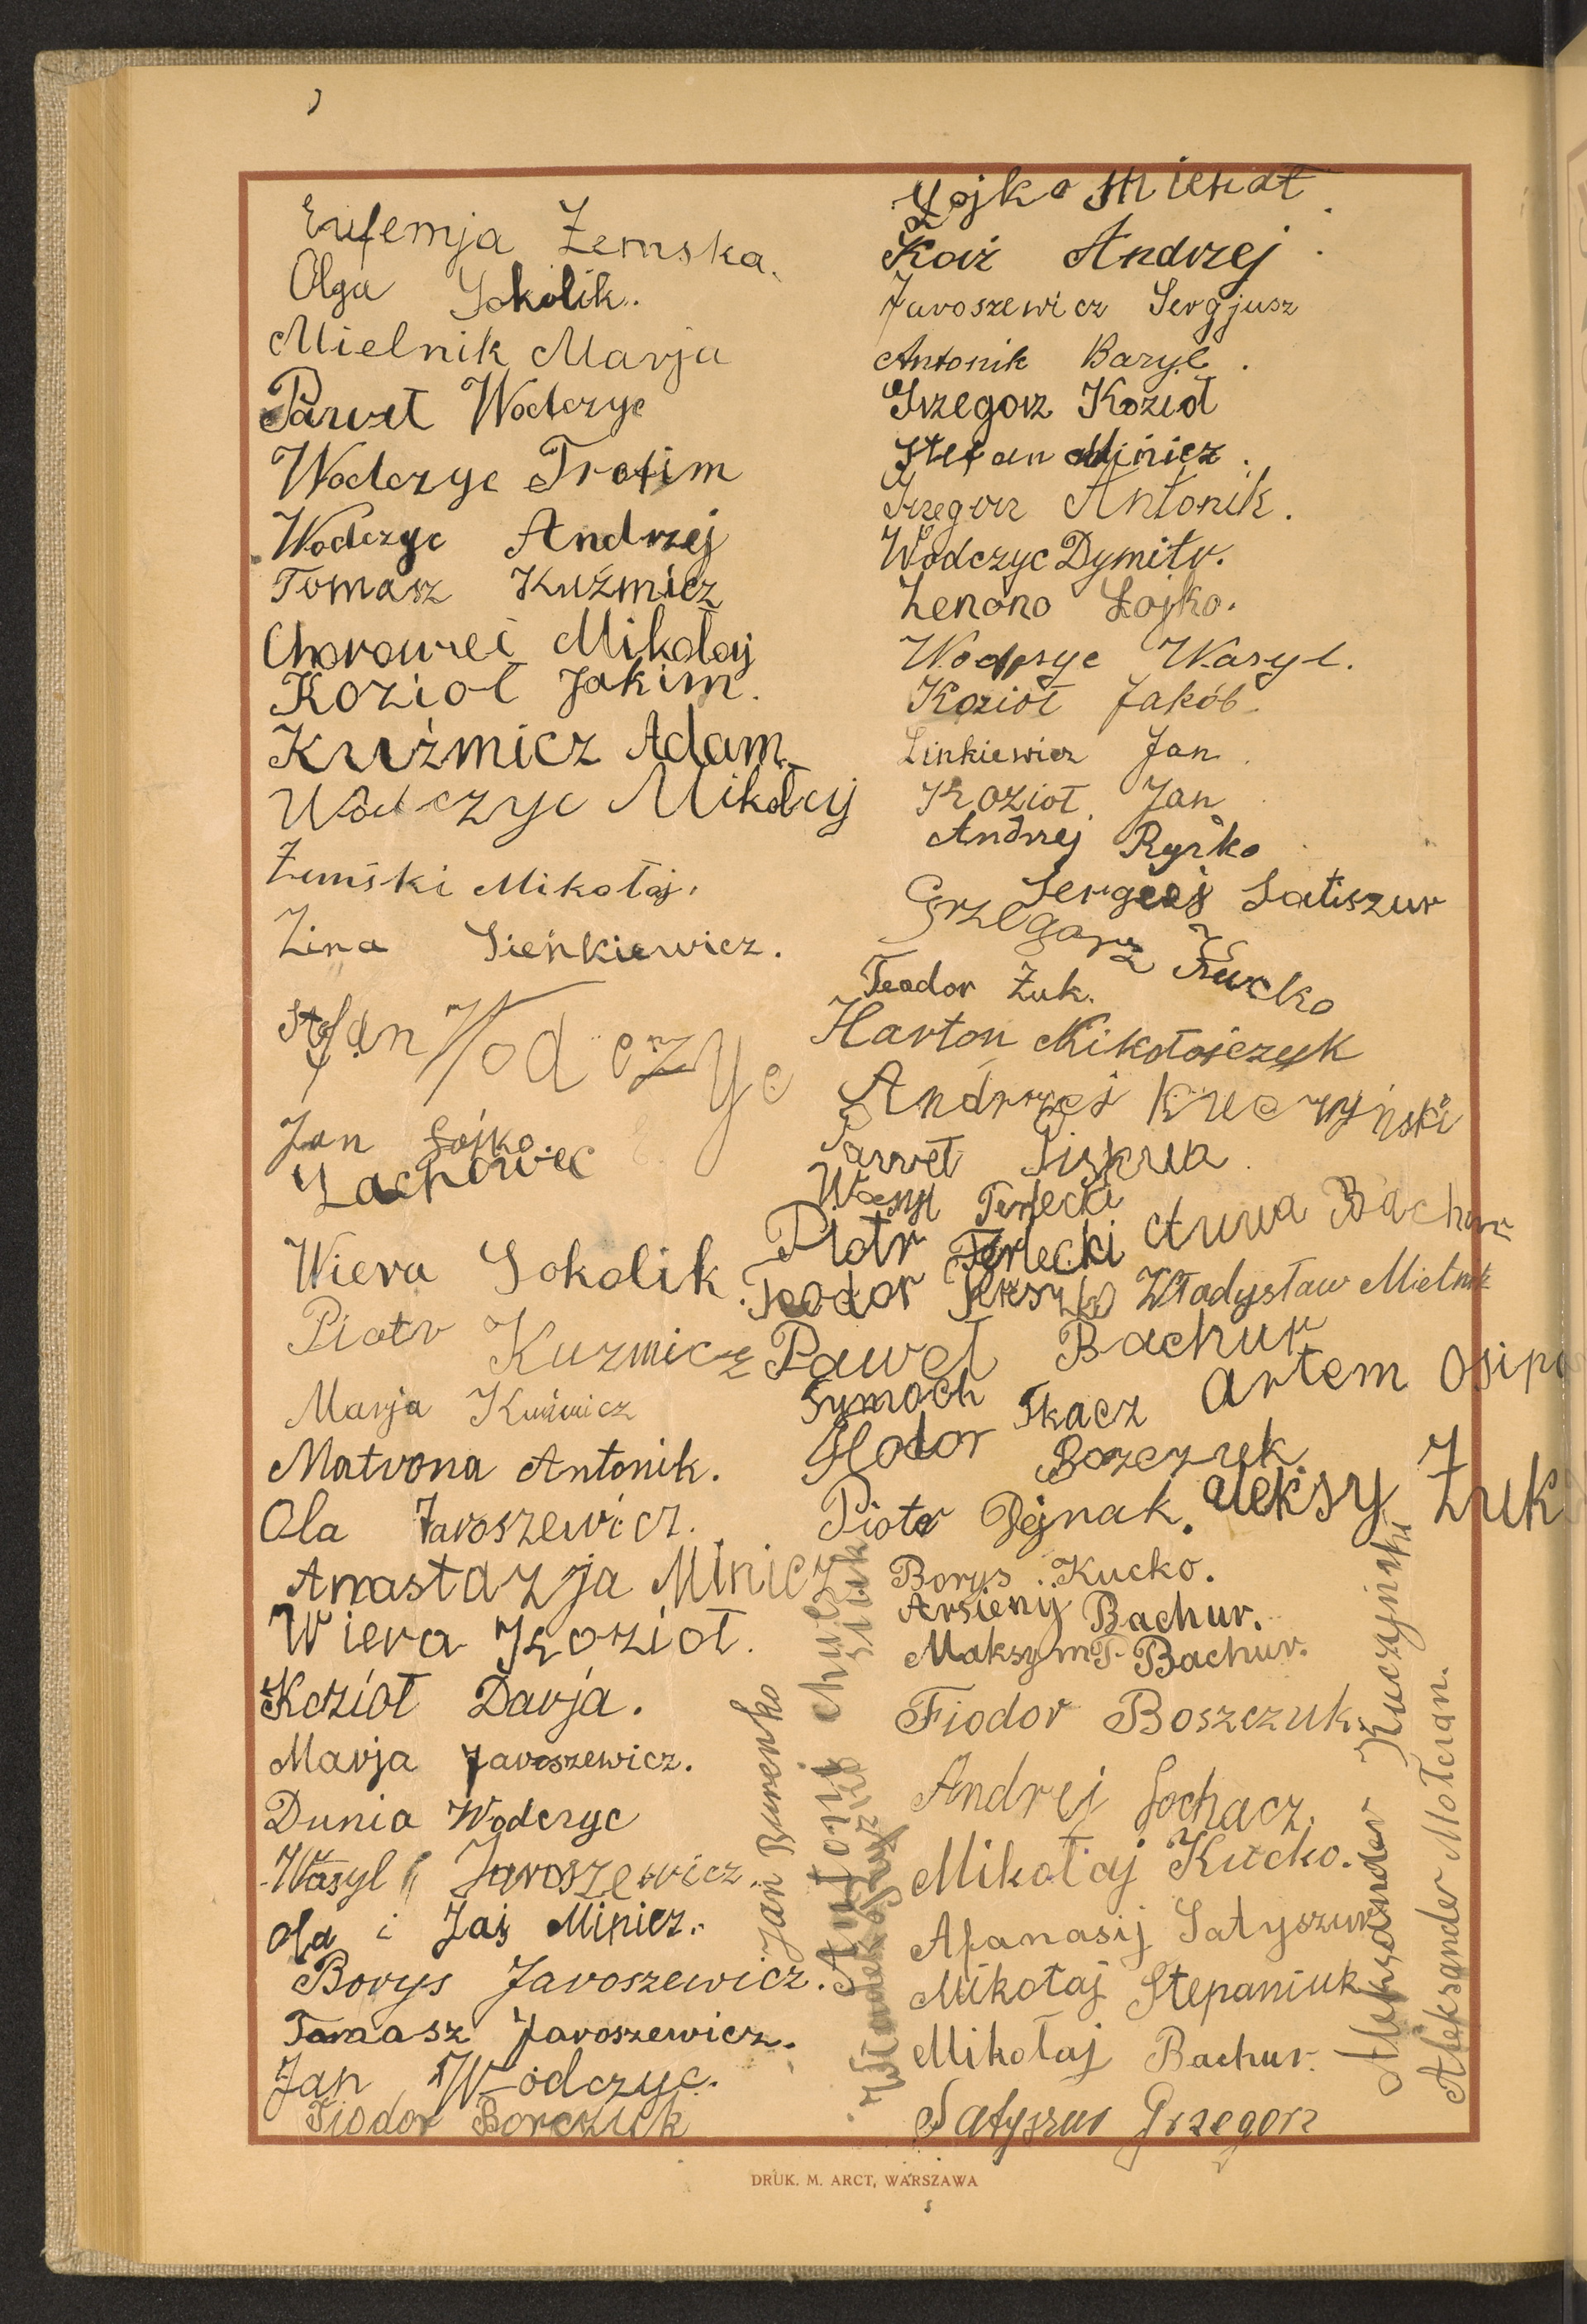 Eufemja Żemska.
Olga Sokolik.
Mielnik Marja
Paweł Wodczyc
Wodczyc Trofim
Wodczyc Andrzej
Tomasz Kuźmicz
Mikołaj
Kozioł Jakim.
Kuźmicz Adam
Wodczyc Mikołaj
Żemski Mikołaj.
Zina Sieńkiewicz.
Stefan Wodczyc
Jan Łojko
Lachowiec
Wiera Sokolik
Piotr Kuzmicz
Marja Kuźmicz
Matrona Antonik.
Ola Jaroszewicz.
Anastazja Minicz
Wiera Kozioł.
Kozioł Darja.
Marja Jaroszewicz.
Dunia Wodczyc
Wasyl Jaroszewicz.
Ola i Jaś Minicz.
Borys Jaroszewicz.
Tomasz Jaroszewicz.
Jan Wodczyc.
Fiodor Borczuk
Jan Burenko
Antoni
Władek
Łojko
Koź Andrzej
Jaroszewicz Sergjusz
Antonik Bazyl.
Grzegorz Kozioł
Stefan Minicz.
Grzegorz Antonik.
Wodczyc Dymitr.
Zenono Łojko.
Wodczyc Wasyl.
Kozioł Jakób.
Linkiewicz Jan.
Kozioł Jan
Andrzej Ryżko
Sergej Satiszur
Grzegorz Kucko
Teodor Żuk.
Harton Mikołajczyk
Andrzej Kuczyński
Paweł Piskwa
Wasyl Terlecki
Piotr Terlecki Anna Bachur
Teodor Władysław Mielnik
Paweł Bachur
Tymoch Tkacz Artem Osipo
Hodor Bozczuk
Piotr Pejnak. Aleksy Żuk
Borys Kucko.
Arsieny Bachur.
Maksym P. Bachur.
Fiodor Boszczuk.
Andrej Sochacz.
Mikołaj Kucko.
Afanasij Satyszur
Mikołaj Stepaniuk
Mikołaj Bachur.
Satyszur Grzegorz
Aleksander Kuczyński
Aleksander Mołczan.
DRUK. M. ARCT, WARSZAWA